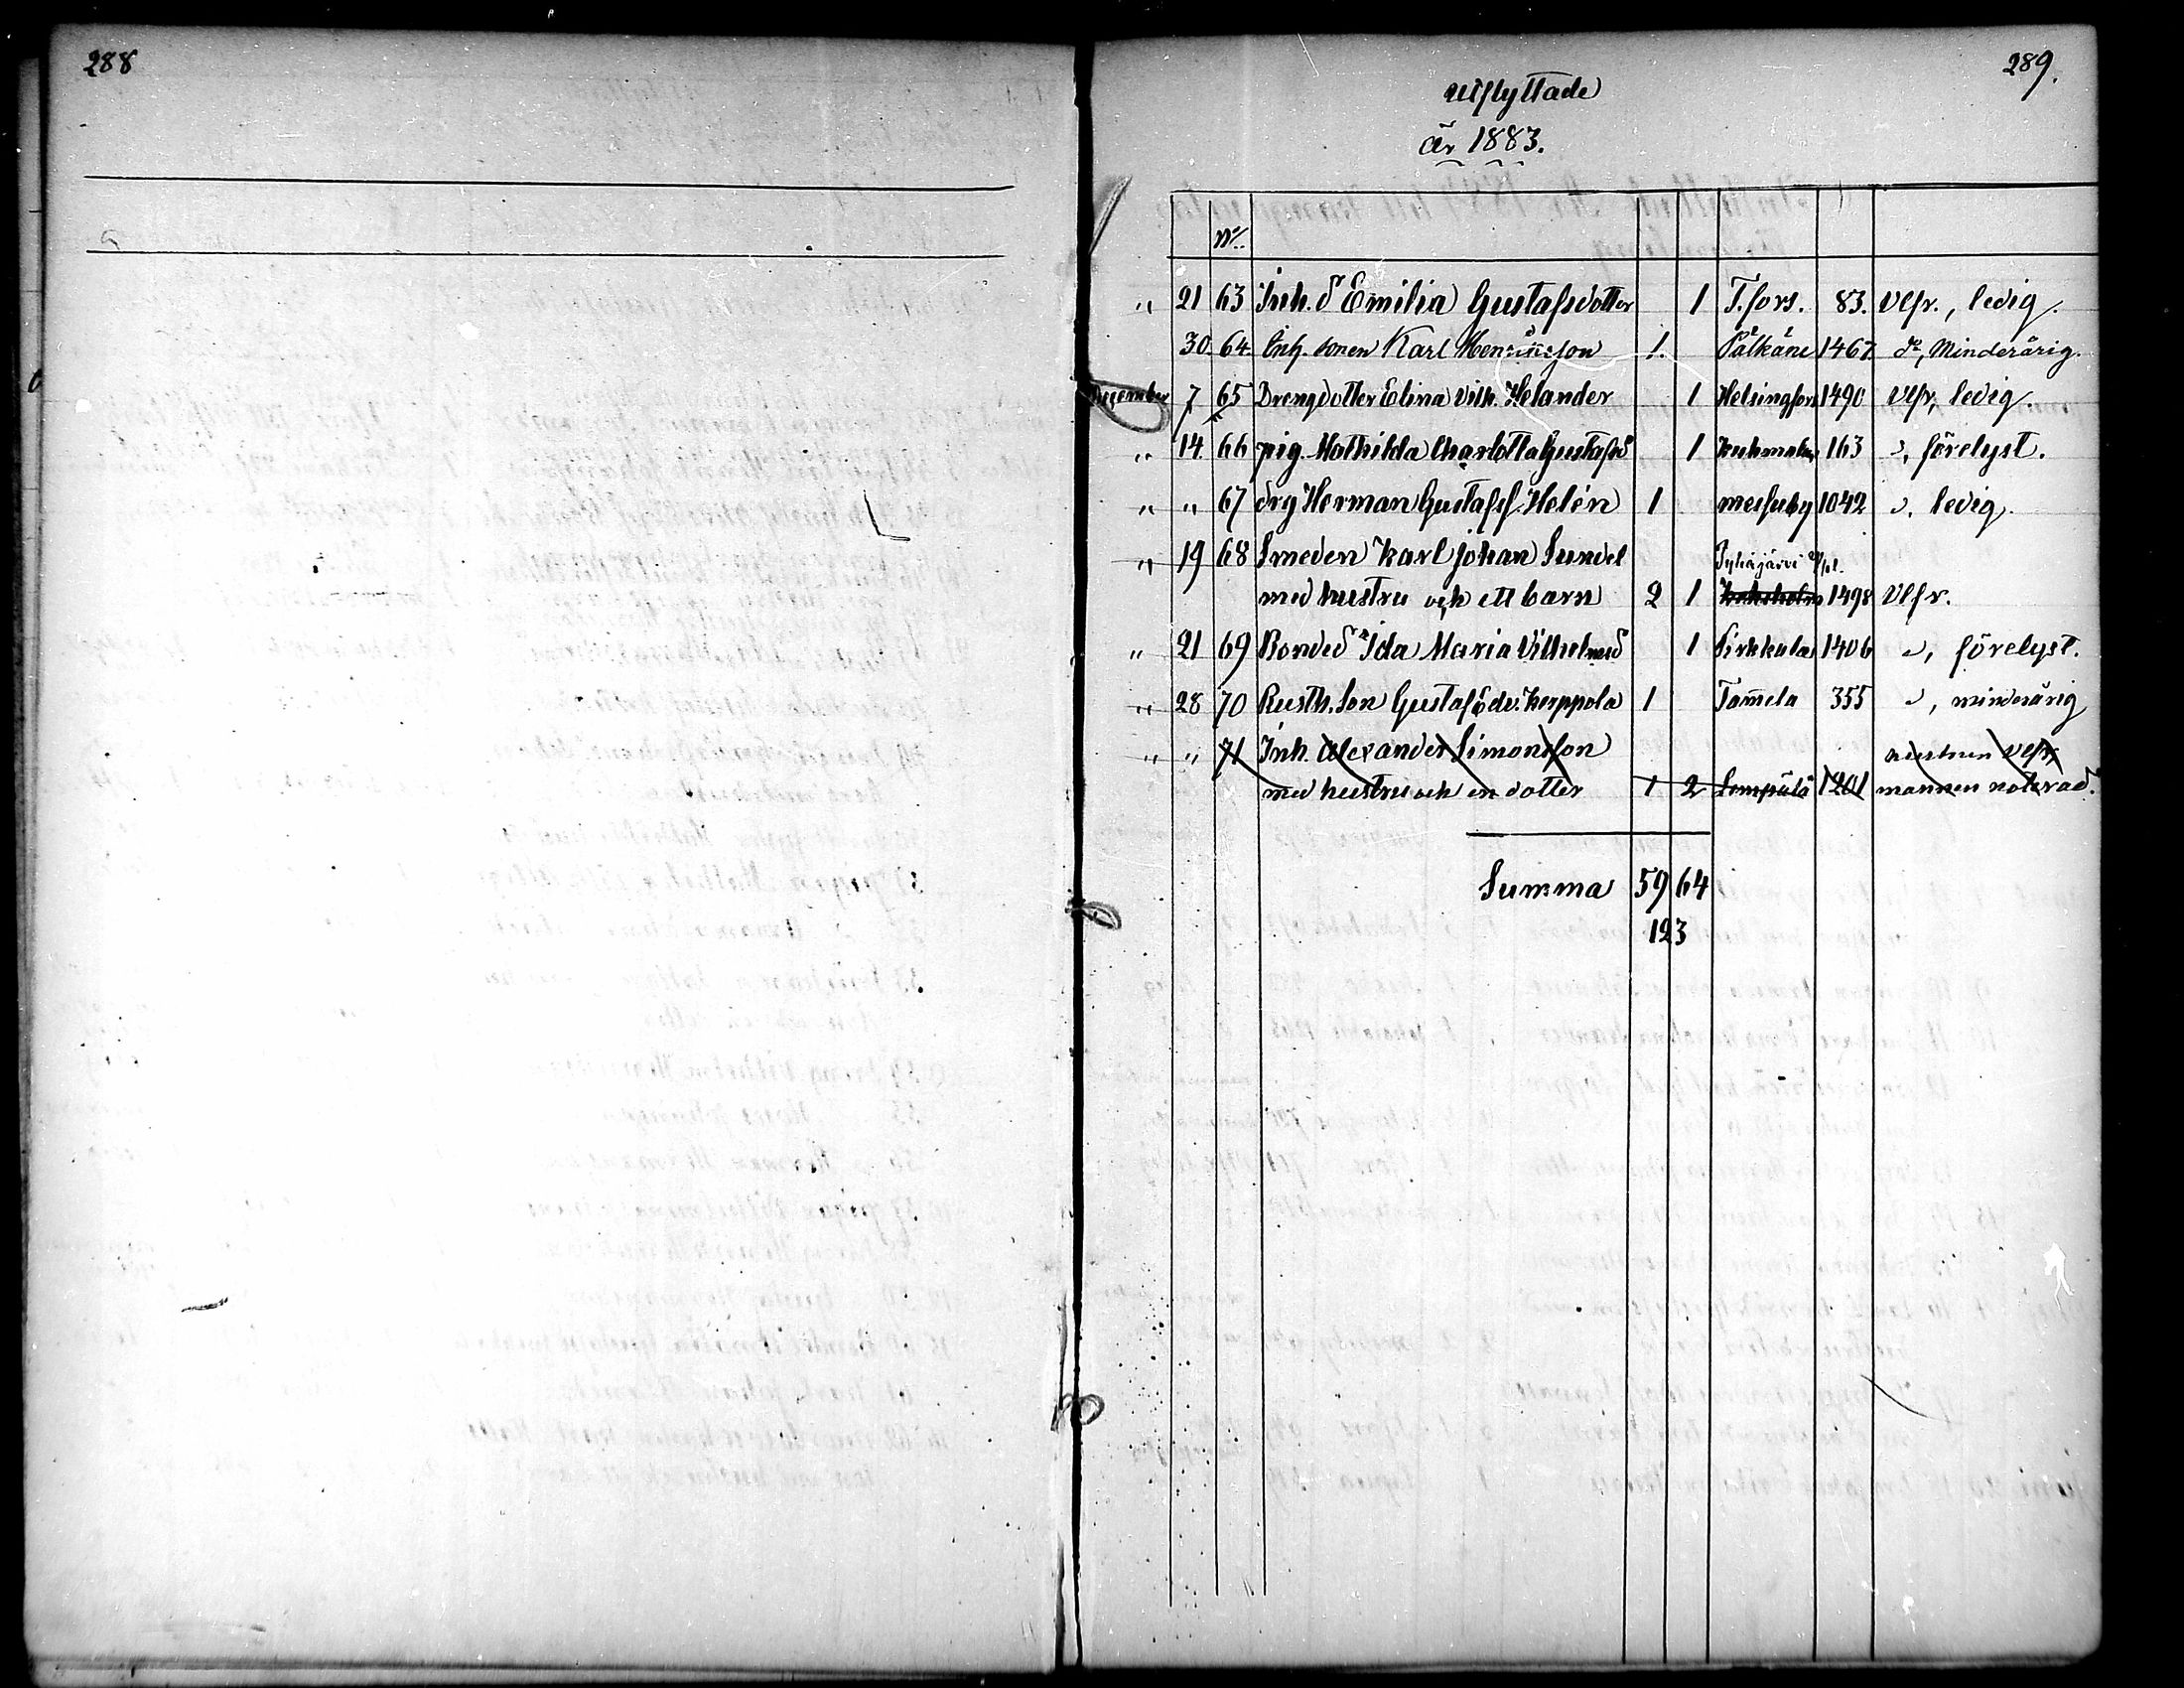 288
289.
utflyttade
år 1883.
No
" 21 63 Inh. d Emilia Gustafsdotter 1 T.fors. 83. Vlfr., ledig.
30. 64. Inh. sonen Karl Henriksson 1. Pälkäne 1467 do, Minderårig.
December 7 65 Drengdotter Elina Vilh. Helander 1 Helsingfors 1490 Vlfr, ledig.
" 14 66 pig. Mathilda Charlotta Gustafsd 1 Kuhmalax 163 ", förelyst.
" " 67 drg Herman Gustafsf. Helén 1 messuby 1042 ". ledig.
" 19 68 Smeden Karl Johan Sundel Pyhäjärvi
med hustru och ett barn 2 1 1498 Vlfr.
" 21 69 Bonded Ida Maria Vilhelmsd 1 Pirkkala 1406 ", förelyst.
" 28 70 Rusth. Son Gustaf Edv. Kerppola 1 Tammela 355 ", minderårig
" " 71 Inh. Alexander Simonsson hustrun Vlfr,
med hustru och en dotter 1 2 Lempälä 1201 mannen noterad.
Summa 59 64
123